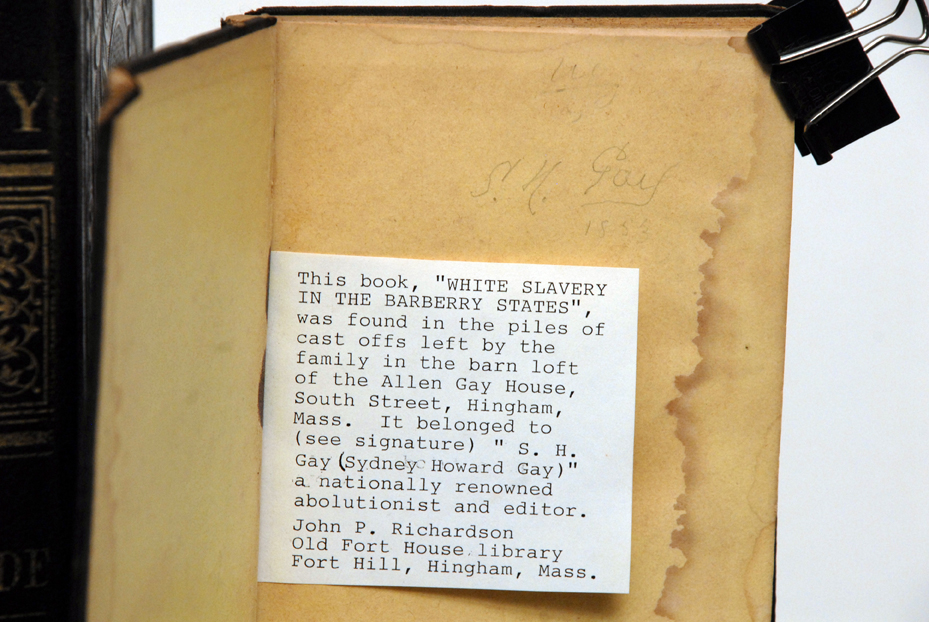 Y
DE
S. H. Gay
1853
This book, "WHITE SLAVERY
IN THE BARBERRY STATES",
was found in the piles of
cast offs left by the
family in the barn loft
of the Allen Gay House,
South Street, Hingham,
Mass. It belonged to
(see signature) " S. H.
Gay (Sydney Howard Gay)"
a nationally renowned
abolutionist and editor.
John P. Richardson
Old Fort House library
Fort Hill, Hingham, Mass.